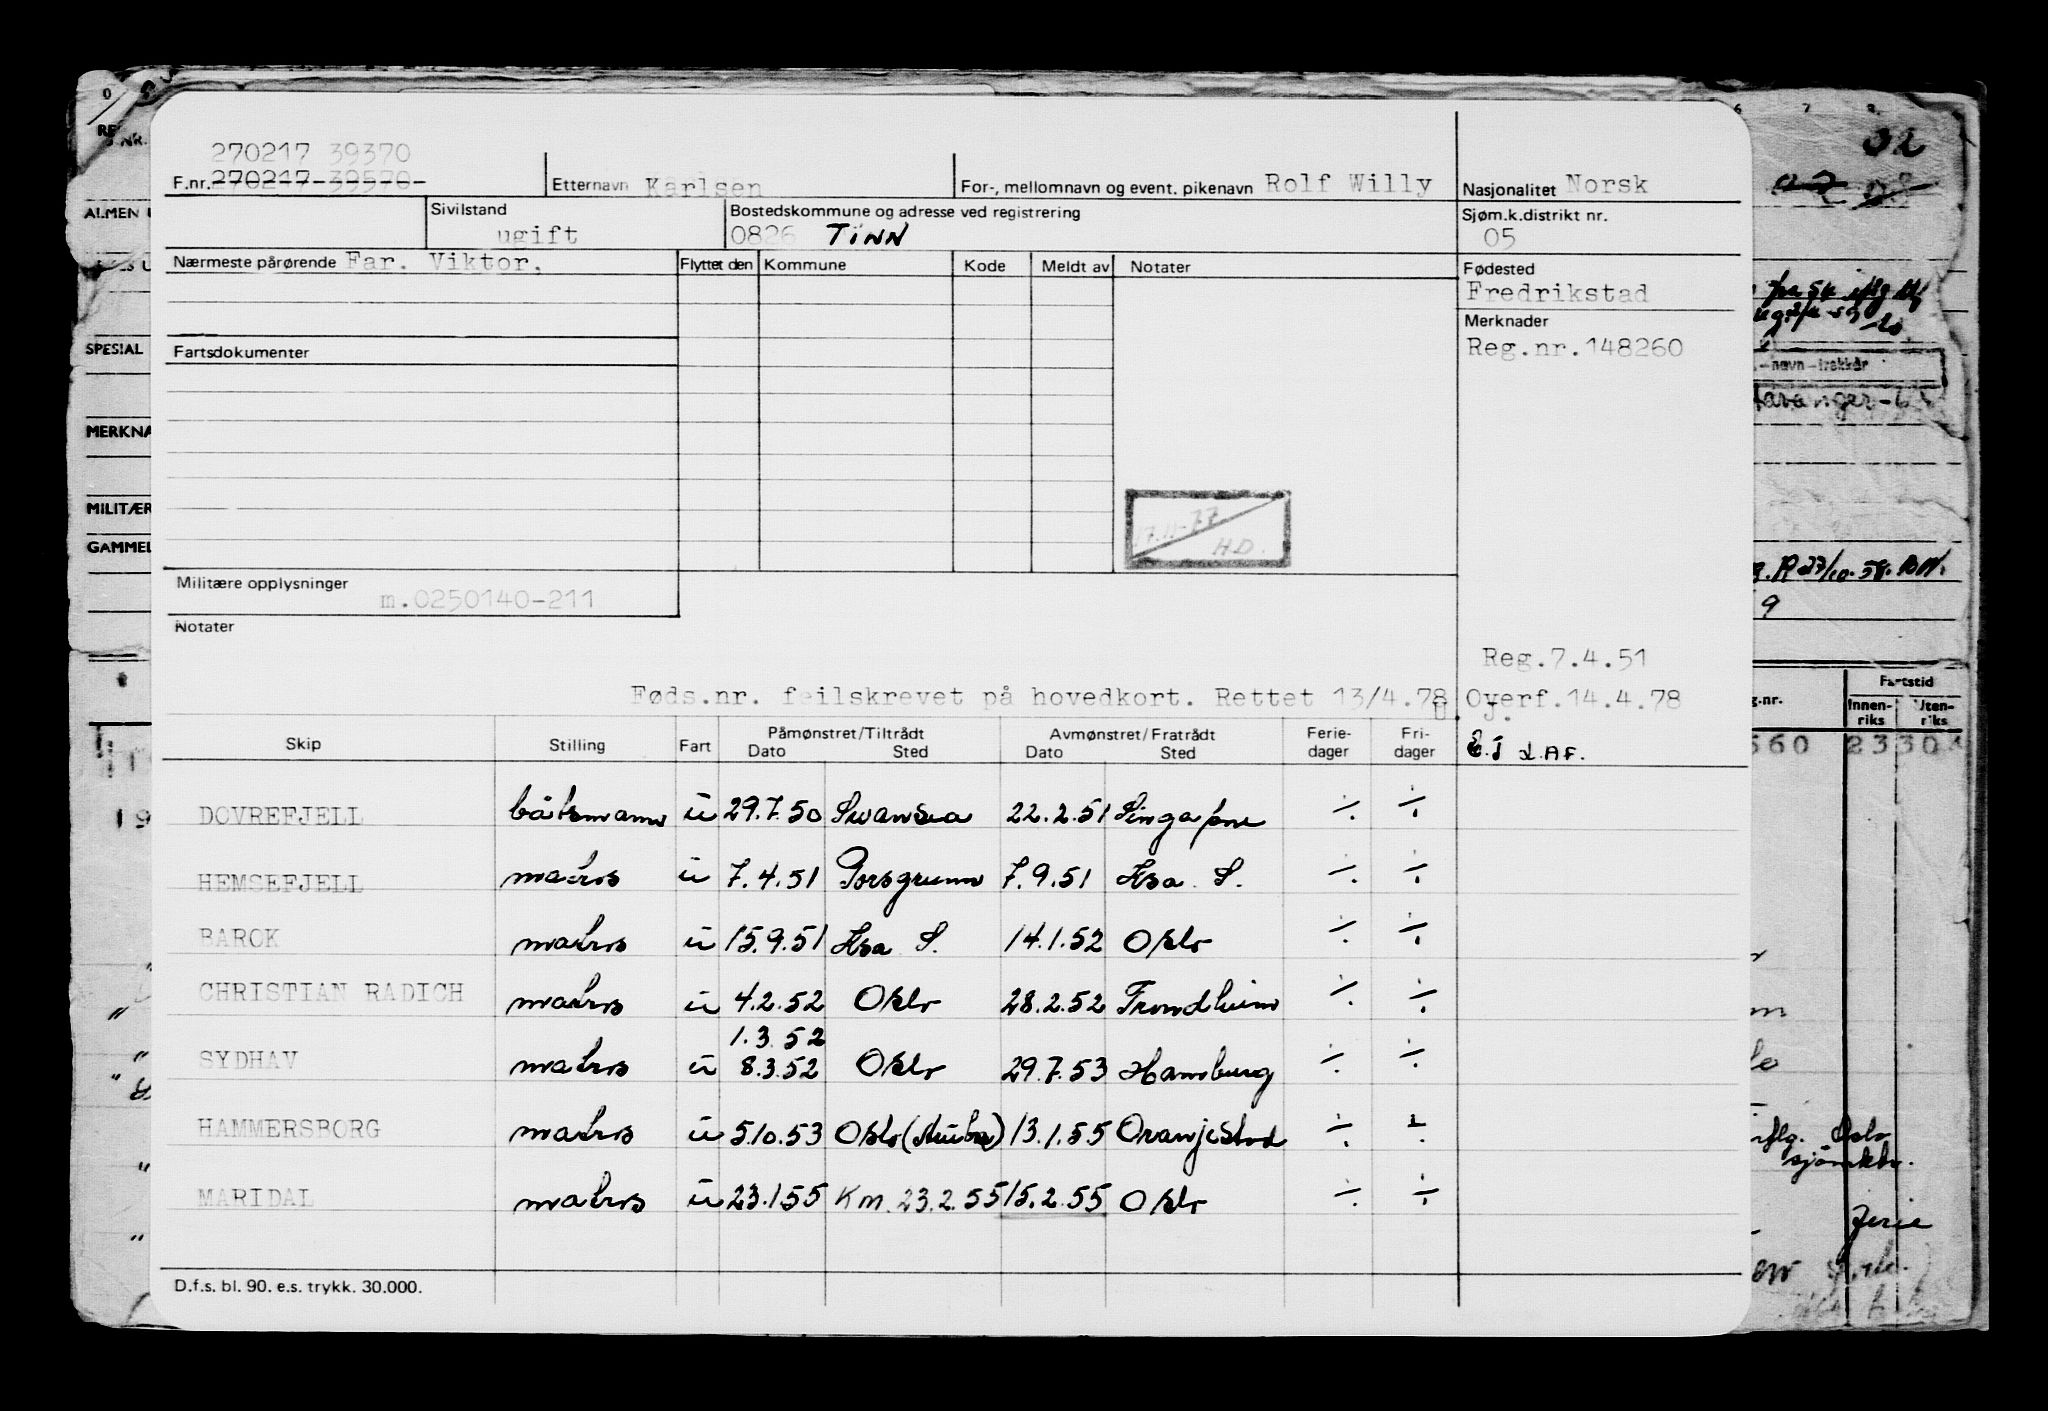 270217 39370
F.nr. 270217-39570- Etternavn Karlsen For-, mellomnavn og event. pikenavn Rolf Willy Nasjonalitet Norsk
Sivilstand Bostedskommune og adresse ved registrering Sjøm.k.distrikt nr.
ugift 0826 TINN 05
Nærmeste pårørende Far. Viktor. Flyttet den Kommune Kode Meldt av Notater Fødested
Fredrikstad
Merknader
Reg.nr.148260
Fartsdokumenter
17.11-77
H.D.
Militære opplysninger
m.0250140-211
Notater
Reg.7.4.51
Føds.nr. feilskrevet på hovedkort. Rettet 13/4.78 Overf.14.4.78
U. J.
Skip Stilling Fart Påmønstret/Tiltrådt Avmønstret/Fratrådt Ferie- Fri-
Dato Sted Dato Sted dager dager E.J L.AF.
DOVREFJELL båtsmann u 29.7.50 Swansea 22.2.51 Singapore ÷ ÷
HEMSEFJELL matros u 7.4.51 Porsgrunn 7.9.51 Hsa S. ÷ ÷
BAROK matros u 15.9.51 Hsa S. 14.1.52 Oslo ÷ ÷
CHRISTIAN RADICH matros u 4.2.52 Oslo 28.2.52 Trondheim ÷ ÷
1.3.52
SYDHAV matros u 8.3.52 Oslo 29.7.53 Hamburg ÷ ÷
HAMMERSBORG matros u 5.10.53 Oslo (Aruba) 13.1.55 Oranjestad ÷ ÷
MARIDAL matros u 23.1.55 Km. 23.2.55 15.2.55 Oslo ÷ ÷
D.f.s. bl. 90. e.s. trykk. 30.000.
0
NR.
ALMEN
SPESIAL
MERKNA
MILITÆR
GAMMEL
19
6 7 8
32
-navn-trekkår
avanger
R 27/10.58. BN.
9
Fartstid
g.nr. Innen-riks Uten-riks
560 23 30
iflg. Oslo
sjømktr.
Ferie